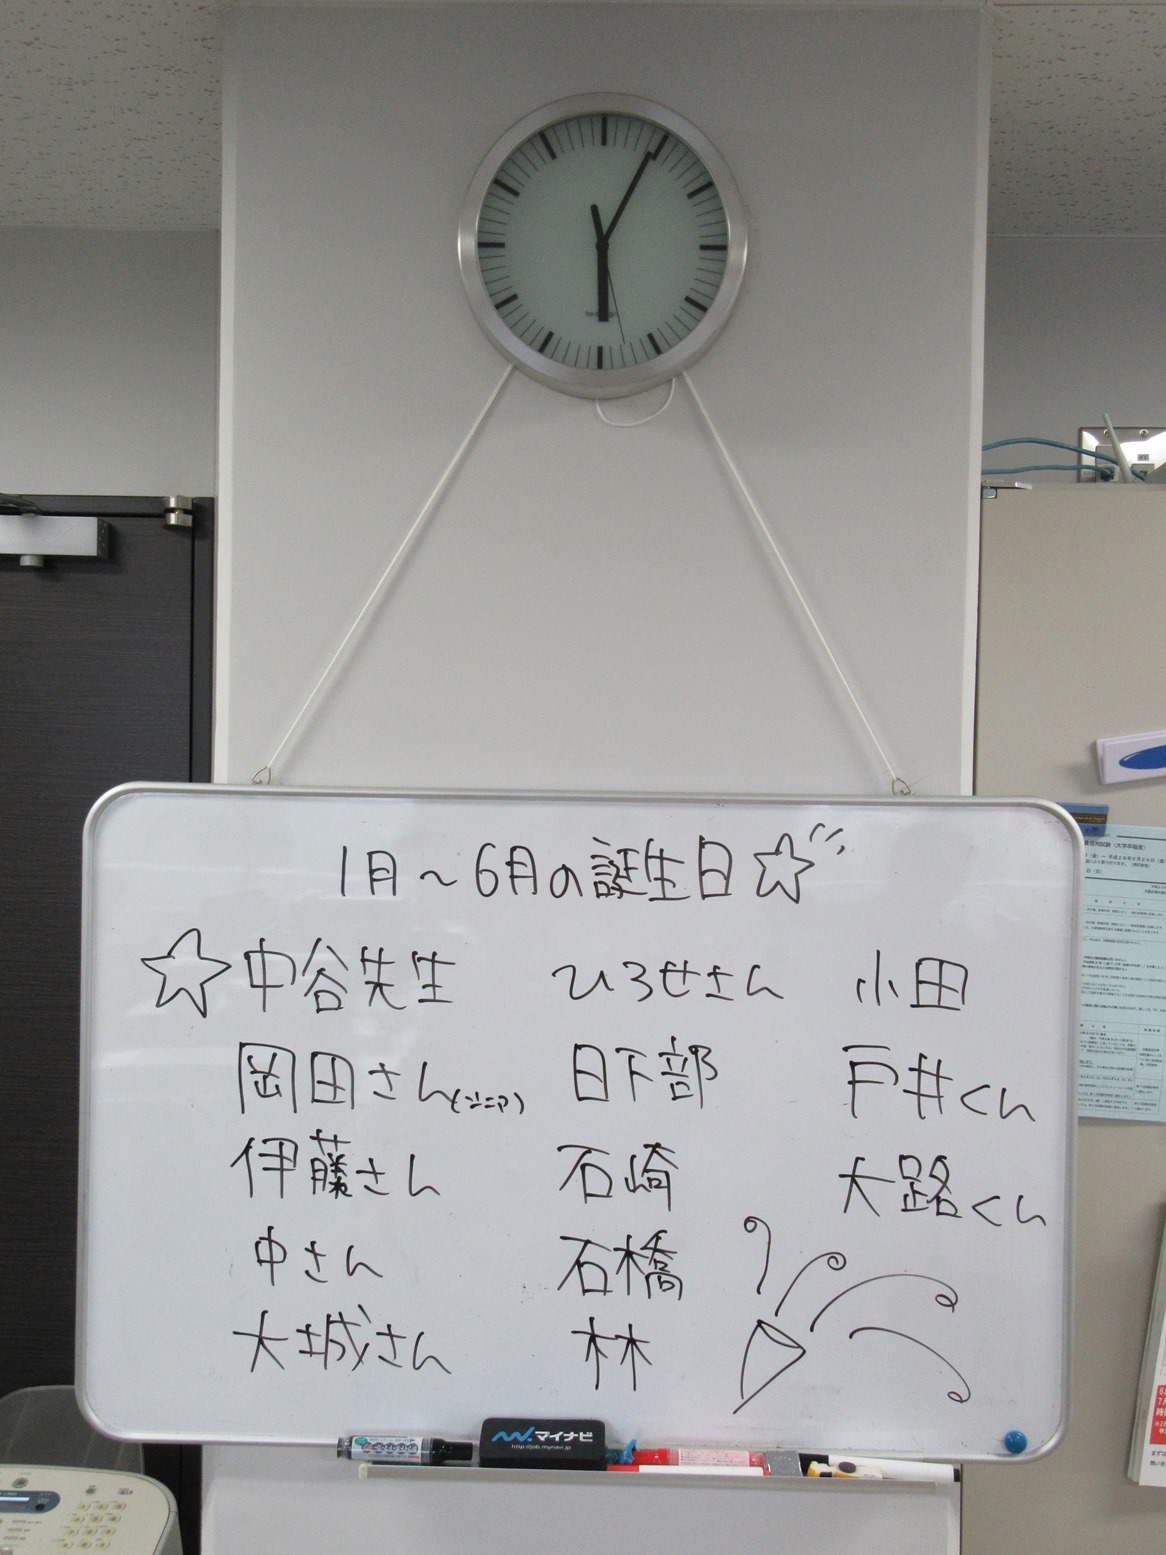 1月～6月の誕生日☆
☆中谷先生
岡田さん(ジニア)
伊藤さん
中さん
大城さん
ひろせさん
日下部
石崎
石橋
林
小田
戸井くん
大路くん
マイナビ
http://job.mynavi.jp